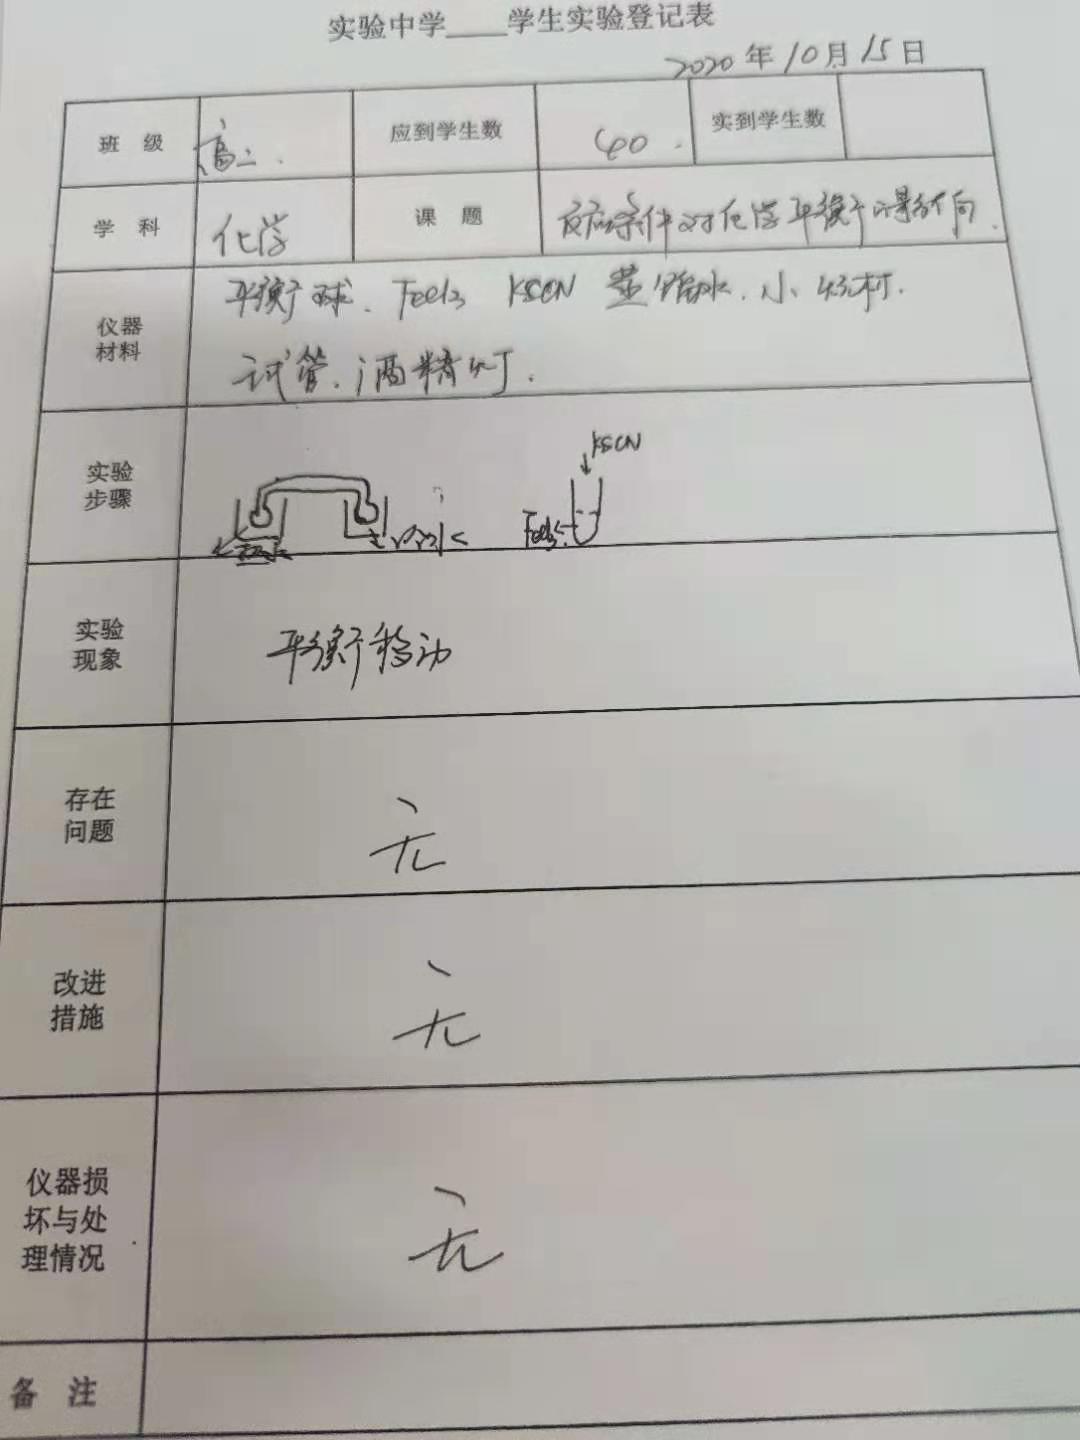 实验中学____学生实验登记表
2020年10月15日
班 级 高二. 应到学生数 60. 实到学生数
学 科 化学 课 题 反应条件对化学平衡的影响.
仪器材料 平衡球. FeCl3 KSCN 蒸馏水. 小烧杯.
试管. 酒精灯.
实验步骤
KSCN
FeCl3
实验现象 平衡移动
存在问题 无
改进措施 无
仪器损坏与处理情况 无
备 注